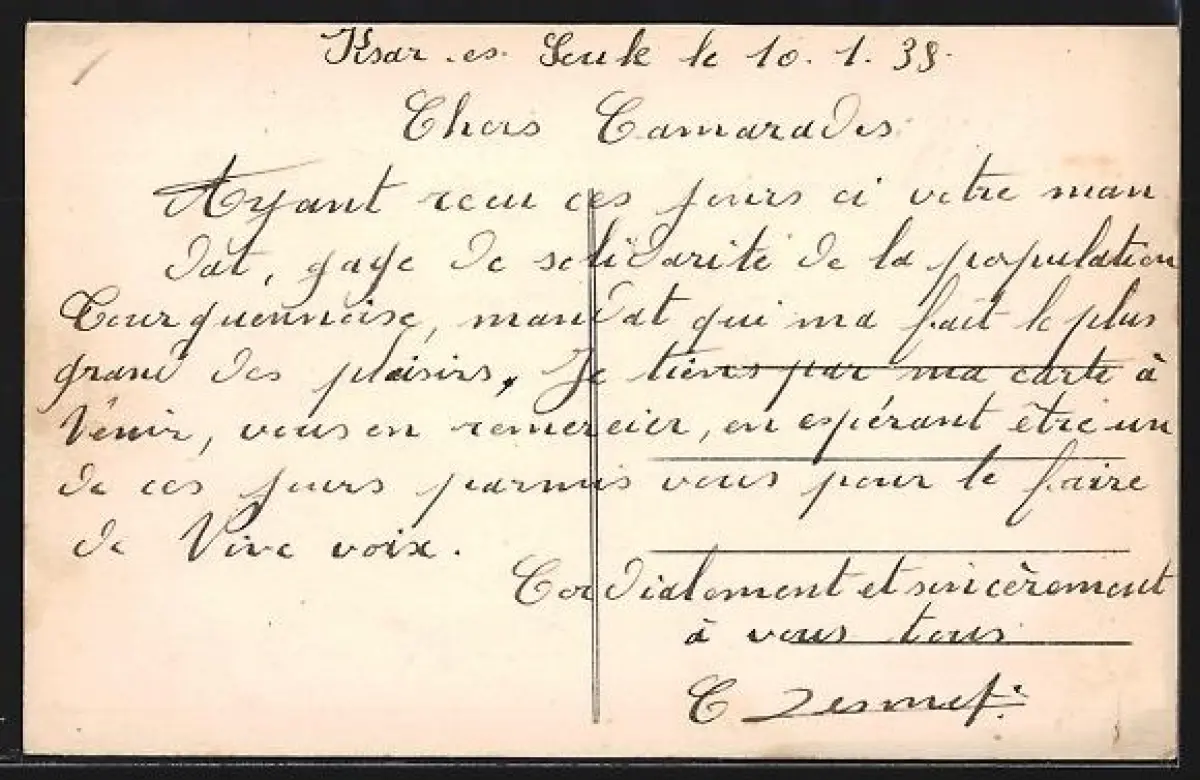 Ksar es Souk le 10.1.39.
Chers Camarades
Ayant recu ces jours ci votre man
dat, gage de solidarité de la population
Tourquennoise, mandat qui ma fait le plus
grand des plaisirs, Je tiens par ma carte à
Vénir, vous en remercier, en espérant être un
de ces jours parmis vous pour le faire
de Vive voix.
Cordialement et sincèrement
à vous tous